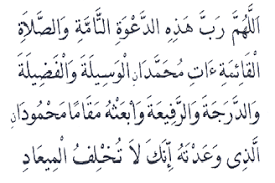 اَللّٰهُمَّ رَبَّ هَذِهِ الدَّعْوَةِ التَّامَّةِ وَالصَّلَاةِ
الْقَائِمَةِ ءَاتِ مُحَمَّدَانِ الْوَسِيلَةَ وَالْفَضِيلَةَ
وَالدَّرَجَةَ وَالرَّفِيعَةَ وَابْعَثْهُ مَقَامًا مَحْمُودَانِ
الَّذِى وَعَدْتَهُ إِنَّكَ لَا تُخْلِفُ الْمِيعَاد